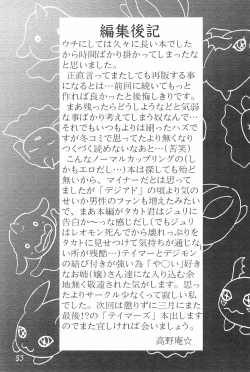 編集後記
ウチにしては久々に長い本でした
から時間ばかり掛かってしまったな
と思いました。
正直言ってまたしても再版する事
になるとは…前回に続いてもっと
作れば良かったと後悔しきりです。
まあ残ったらどうしようなどと気弱
な事ばかり考えてしまう奴なんで…
それでもいつもよりは刷ったハズで
すが冬コミで思ってたより無くなり
つくづく読めないなあと…（苦笑）
こんなノーマルカップリングの（し
かもエロだし…）本は探しても殆ど
無いから、マイナーだとは思って
ましたが「デジアド」の頃より気の
せいか男性のファンも増えたみたい
で、まあ本編がタカト君はジュリに
告白かーっな感じだし（でもジュリ
はレオモン死んでから壊れっぷりを
タカトに見せつけて気持ちが通じな
い所が残酷…）テイマーとデジモン
の結び付きが強い為「や〇い」好き
なお姉（嬢）さん達に入り込む余
地無く敬遠された気がします。思っ
たよりサークル少なくって寂しい私
でした。次回は懲りずに三月にまた
最後!?の「テイマーズ」本出します
のでまた宜しければ会いましょう。
高野庵☆
53